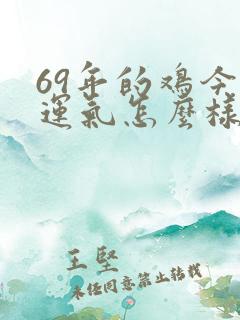 69年的鸡今
運氣怎麼樣
王堅
未经同意禁止转载